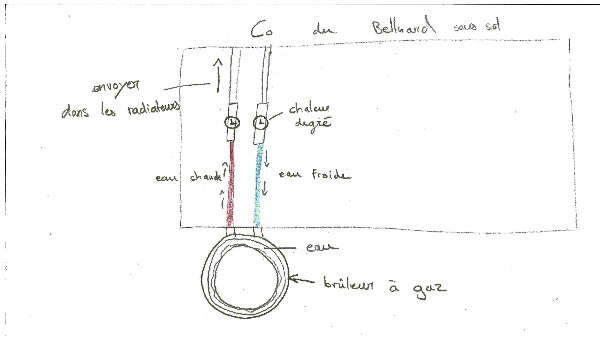 Co du Belluard sous sol
envoyer
dans les radiateurs
chaleur
degré
eau chaude
eau froide
eau
brûleur à gaz